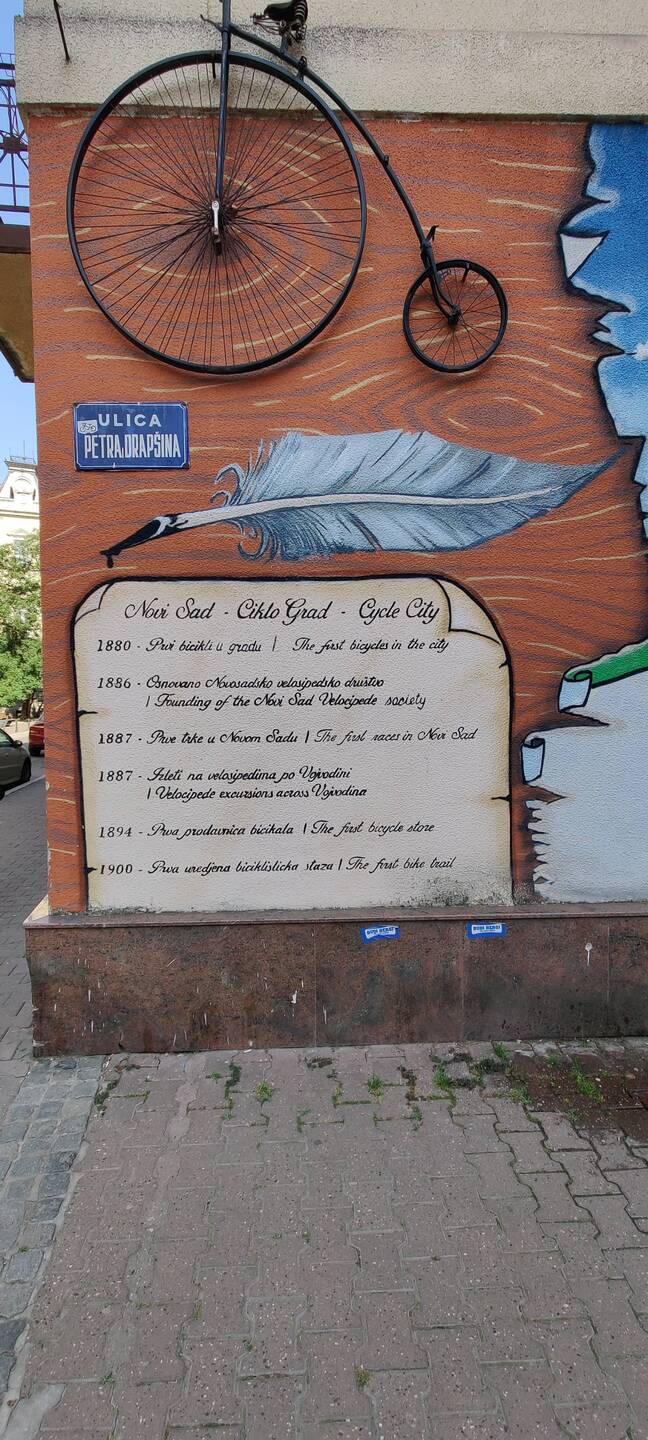 ULICA
PETRA DRAPŠINA
Novi Sad - Ciklo Grad - Cycle City
1880 - Prvi bicikli u gradu | The first bicycles in the city
1886 - Osnovano Novosadsko velosipedsko društvo
| Founding of the Novi Sad Velocipede society
1887 - Prve trke u Novom Sadu | The first races in Novi Sad
1887 - Izleti na velosipedima po Vojvodini
| Velocipede excursions across Vojvodina
1894 - Prva prodavnica bicikala | The first bicycle store
1900 - Prva uredjena biciklisticka staza | The first bike trail